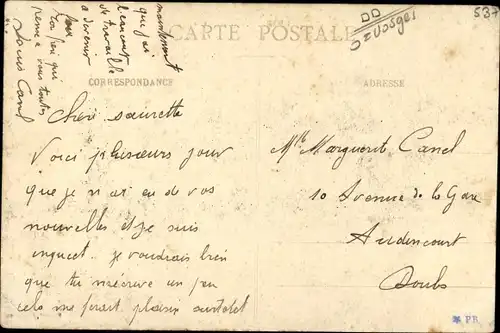 CARTE POSTALE
CORRESPONDANCE
ADRESSE
DD
Vosges
537
Chère sœurette
Voici plusieurs jour
que je n ai eu de vos
nouvelles et je suis
inquiet. je voudrais bien
que tu m'écrive un peu
cela me ferait plaisir surtout
maintenant
que j'ai
de travaille
a
Ton frère qui
pense a vous toutes
Louis Canel
Mlle Marguerite Canel
10 Avenue de la Gare
Audincourt
Doubs
PR